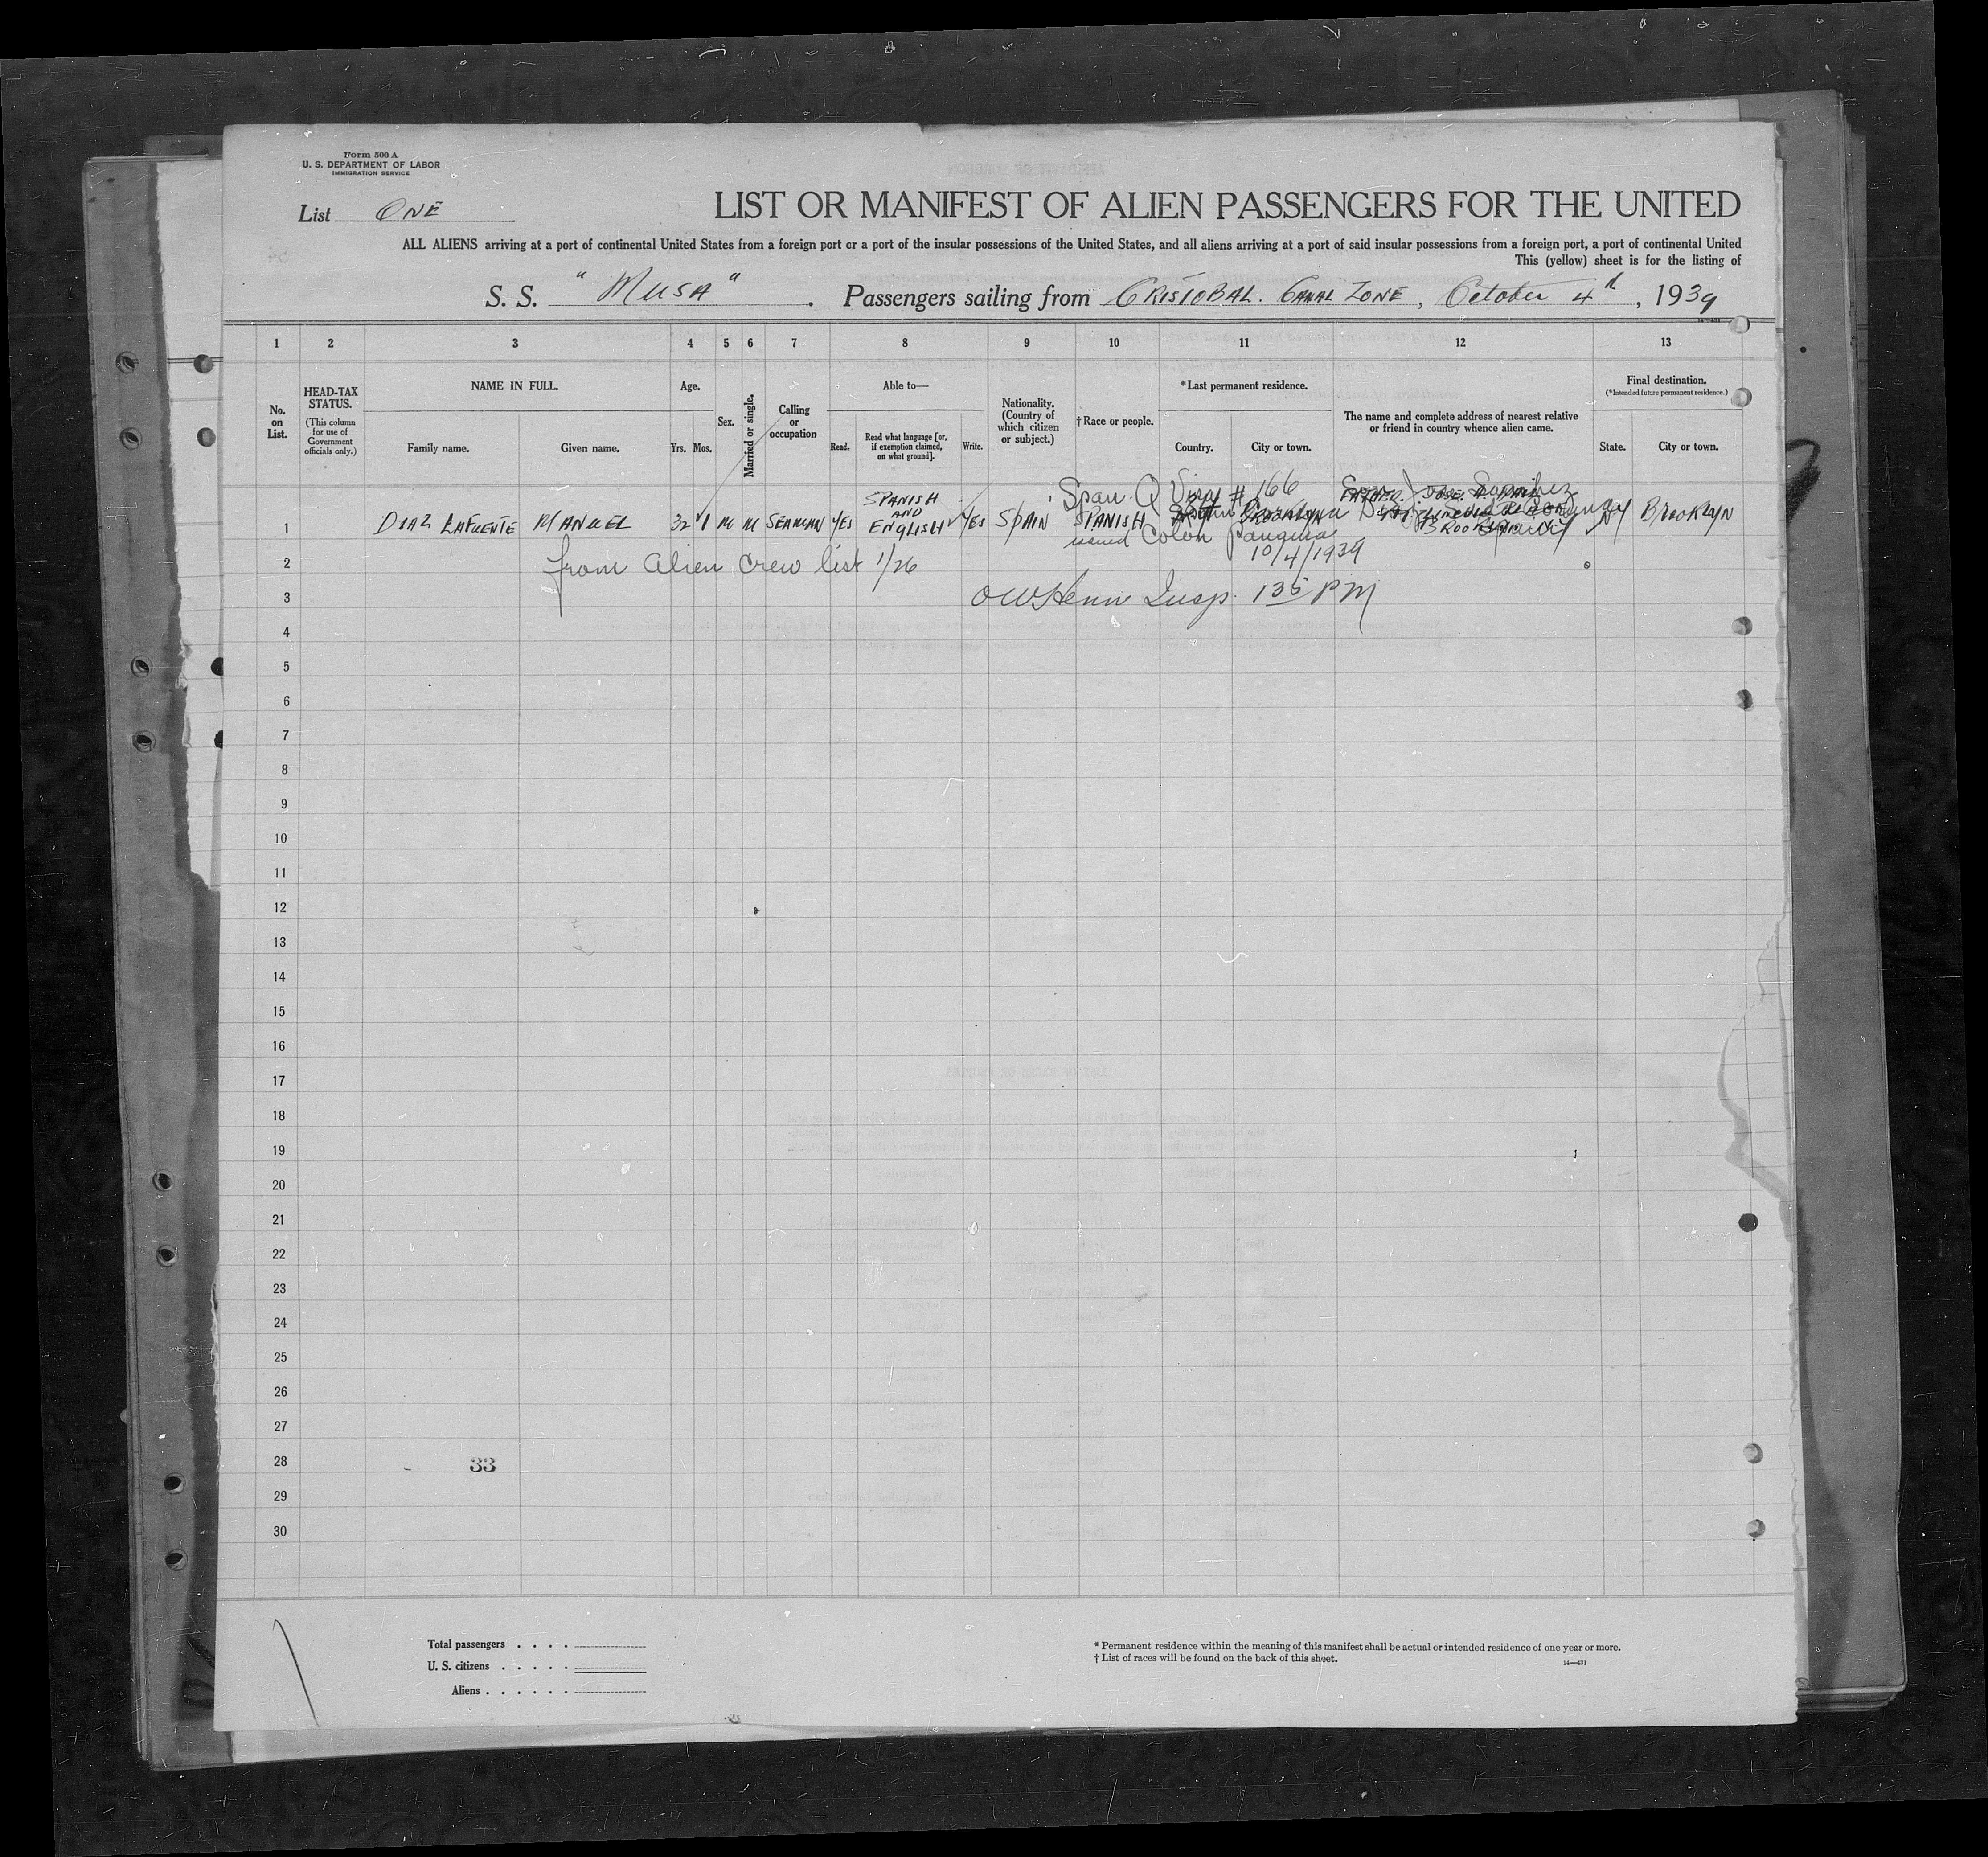 Form 500 A
U. S. DEPARTMENT OF LABOR
IMMIGRATION SERVICE
List ONE
LIST OR MANIFEST OF ALIEN PASSENGERS FOR THE UNITED
ALL ALIENS arriving at a port of continental United States from a foreign port or a port of the insular possessions of the United States, and all aliens arriving at a port of said insular possessions from a foreign port, a port of continental United
This (yellow) sheet is for the listing of
S. S. "MUSA". Passengers sailing from CRISTOBAL. CANAL ZONE, October 4th, 1939
14—431
1 2 3 4 5 6 7 8 9 10 11 12 13
No. on List.
HEAD-TAX STATUS.
(This column for use of Government officials only.)
NAME IN FULL.
Family name.
Given name.
Age.
Yrs. Mos.
Sex.
Married or single.
Calling or occupation
Able to—
Read.
Read what language [or, if exemption claimed, on what ground].
Write.
Nationality. (Country of which citizen or subject.)
†Race or people.
*Last permanent residence.
Country.
City or town.
The name and complete address of nearest relative or friend in country whence alien came.
Final destination.
(*Intended future permanent residence.)
State.
City or town.
Span. Q Visa # 166
1 DIAZ LAFUENTE MANUEL 32 1 M M SEAMAN YES SPANISH AND ENGLISH YES SPAIN SPANISH BROOKLYN NY BROOKLYN
issued Colon Panama
10/4/1939
2 from Alien Crew list 1/26
3 Insp. 135 PM
4
5
6
7
8
9
10
11
12
13
14
15
16
17
18
19
20
21
22
23
24
25
26
27
28 33
29
30
Total passengers . . . .
U. S. citizens . . . . .
Aliens . . . . . .
* Permanent residence within the meaning of this manifest shall be actual or intended residence of one year or more.
† List of races will be found on the back of this sheet.
14—431